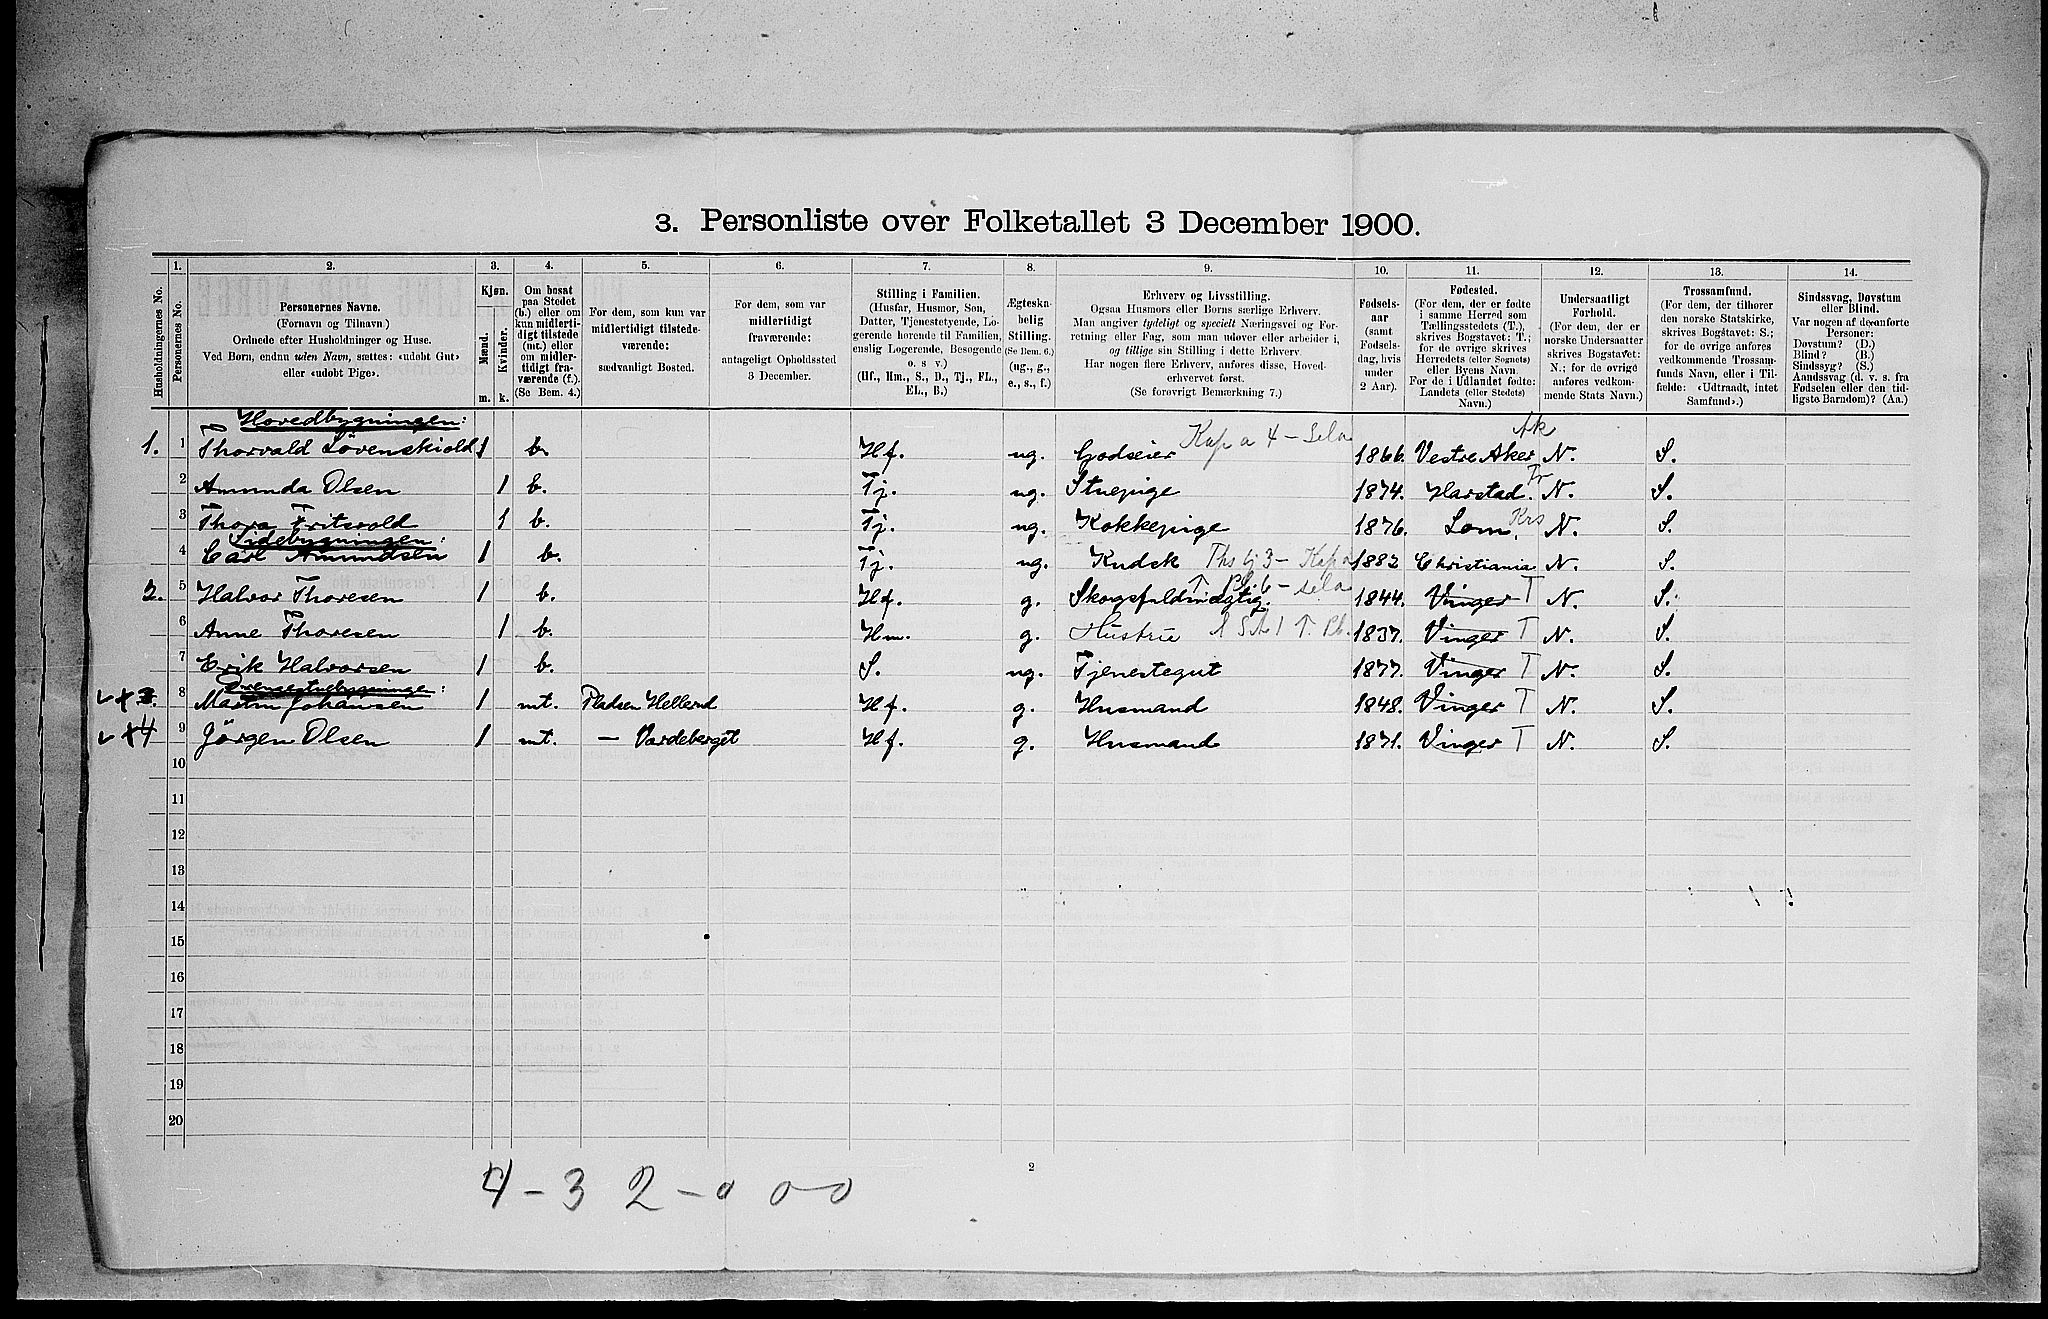 3. Personliste over Folketallet 3 December 1900.
Husholdningernes No.
1. Personernes No.
2. Personernes Navne.
(Fornavn og Tilnavn)
Ordnede efter Husholdninger og Huse.
Ved Børn, endnu uden Navn, sættes: «udøbt Gut»
eller «udøbt Pige».
3. Kjøn.
Mænd. Kvinder.
m. k.
4. Om bosat
paa Stedet
(b.) eller om
kun midlerti-
digt tilstede
(mt.) eller
om midler-
tidigt fra-
værende (f.).
(Se Bem. 4.)
5. For dem, som kun var
midlertidigt tilstede-
værende:
sædvanligt Bosted.
6. For dem, som var
midlertidigt
fraværende:
antageligt Opholdssted
3 December.
7. Stilling i Familien.
(Husfar, Husmor, Søn,
Datter, Tjenestetyende, Lo-
gerende hørende til Familien,
enslig Logerende, Besøgende
o. s. v.)
(Hf., Hm., S., D., Tj., FL.,
EL., B.)
8. Ægteska-
belig
Stilling.
(Se Bem. 6.)
(ug., g.,
e., s., f.)
9. Erhverv og Livsstilling.
Ogsaa Husmors eller Børns særlige Erhverv.
Man angiver tydeligt og specielt Næringsvei og For-
retning eller Fag, som man udøver eller arbeider i,
og tillige sin Stilling i dette Erhverv.
Har nogen flere Erhverv, anføres disse, Hoved-
erhvervet først.
(Se forøvrigt Bemærkning 7.)
10. Fødsels-
aar
(samt
Fødsels-
dag, hvis
under
2 Aar).
11. Fødested.
(For dem, der er fødte
i samme Herred som
Tællingsstedets (T.),
skrives Bogstavet: T.;
for de øvrige skrives
Herredets (eller Sognets)
eller Byens Navn.
For de i Udlandet fødte:
Landets (eller Stedets)
Navn.)
12. Undersaatligt
Forhold.
(For dem, der er
norske Undersaatter
skrives Bogstavet:
N.; for de øvrige
anføres vedkom-
mende Stats Navn.)
13. Trossamfund.
(For dem, der tilhører
den norske Statskirke,
skrives Bogstavet: S.;
for de øvrige anføres
vedkommende Trossam-
funds Navn, eller i Til-
fælde: «Udtraadt, intet
Samfund».)
14. Sindssvag, Døvstum
eller Blind.
Var nogen af de anførte
Personer:
Døvstum? (D.)
Blind? (B.)
Sindssyg? (S.)
Aandssvag (d. v. s. fra
Fødselen eller den tid-
ligste Barndom)? (Aa.)
Hovedbygningen:
1. 1 Thorvald Løvenskiold 1 b. Hf. ug. Godseier Kap a 4 – Sela 1866. Vestre Aker Ak N. S.
2 Amunda Olsen 1 b. Tj. ug. Stuepige 1874. Harstad. Tr N. S.
3 Thora Fritsvold 1 b. Tj. ug. Kokkepige 1876. Lom, Krs N. S.
Sidebygningen:
4 Carl Amundsen 1 b. Tj. ug. Kudsk Ths tj 3 – Kap a 1882 Christiania N. S.
2. 5 Halvor Thoresen 1 b. Hf. g. Skogsfuldmægtig. – sela 1844. Vinger T N. S.
6 Anne Thoresen 1 b. Hm. g. Hustru 1837. Vinger T N. S.
7 Erik Halvorsen 1 b. S. ug. Tjenestegut 1877. Vinger T N. S.
Drengestuebygningen:
3. 8 Martin Johansen 1 mt. Pladsen Hellerud Hf. g. Husmand 1848. Vinger T N. S.
4 9 Jørgen Olsen 1 mt. – Vardeberget Hf. g. Husmand 1871. Vinger T N. S.
10
11
12
13
14
15
16
17
18
19
20
2
4 – 3 2 – 0 0 0